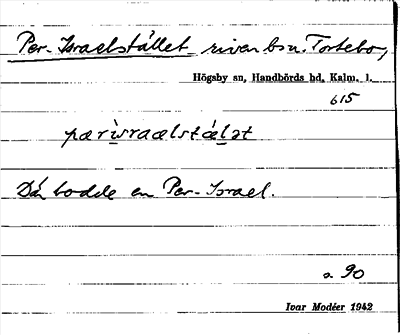 Per-Israelstället riven bsn. Tortebo,
Högsby sn, Handbörds hd, Kalm. l.
615
pærìsraælstæ̀lət
Där bodde en Per-Israel.
s. 90
Ivar Modéer 1942